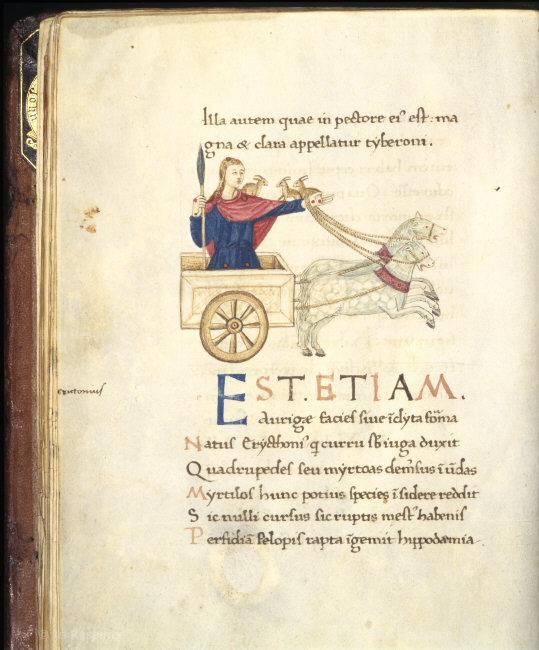 Illa autem quae in pectore ei' est: ma
gna & clara appellatur tyberoni.
EST. ETIAM.
Aurigæ facies siue īclyta fōma
Natus Erycthoni' q̄ curru sb̄ iuga duxit
Quadrupedes seu myrtoas dem̄sus ī ūdas
Myrtilos hunc potius species ī sidere reddit
Sic nulli currus sic ruptis mest' habenis
Perfidiā Pelopis rapta īgemit hippodamia
erictonius